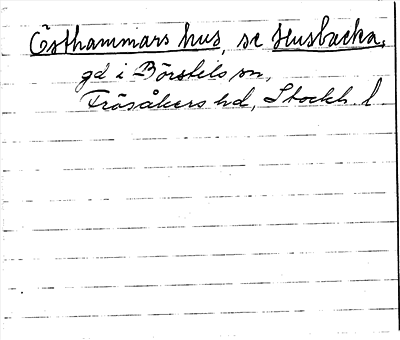 Östhammars hus, se Husbacka,
gd i Börstils sn,
Frösåkers hd, Stockh. l